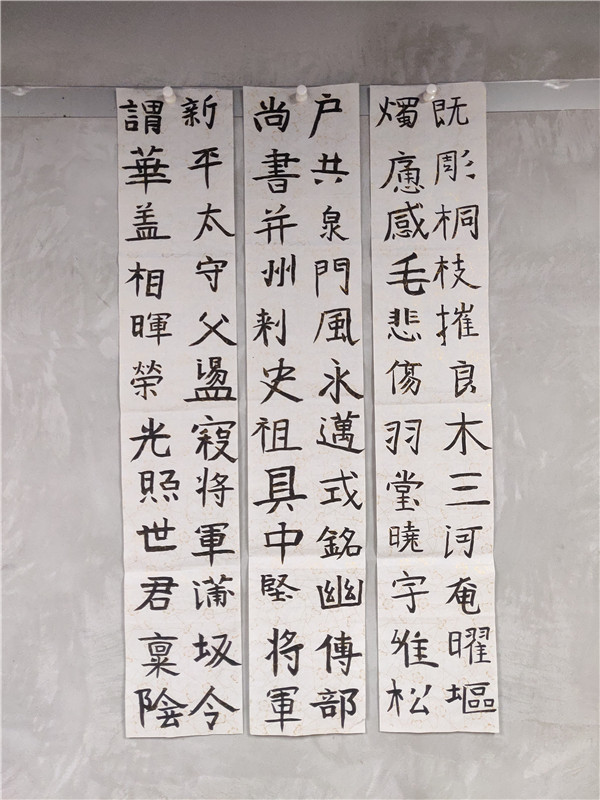 既彫桐枝摧良木三河奄曜塸
燭感毛悲傷羽堂曉字松
户共泉門風永邁式銘幽傳部
尚書并州刺史祖具中堅将軍
新平太守父盪寇将軍蒲坂令
謂華盖相暉榮光照世君稟陰